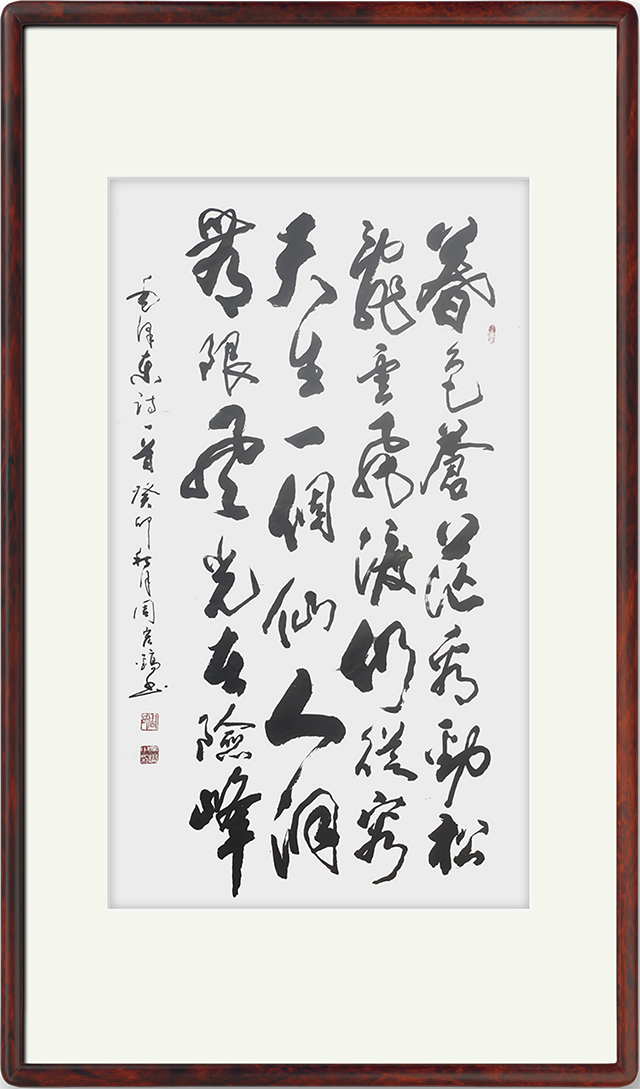 暮色蒼茫看勁松
亂雲飛渡仍從容
天生一個仙人洞
無限風光在險峰
毛泽東诗一首癸卯秋月周書